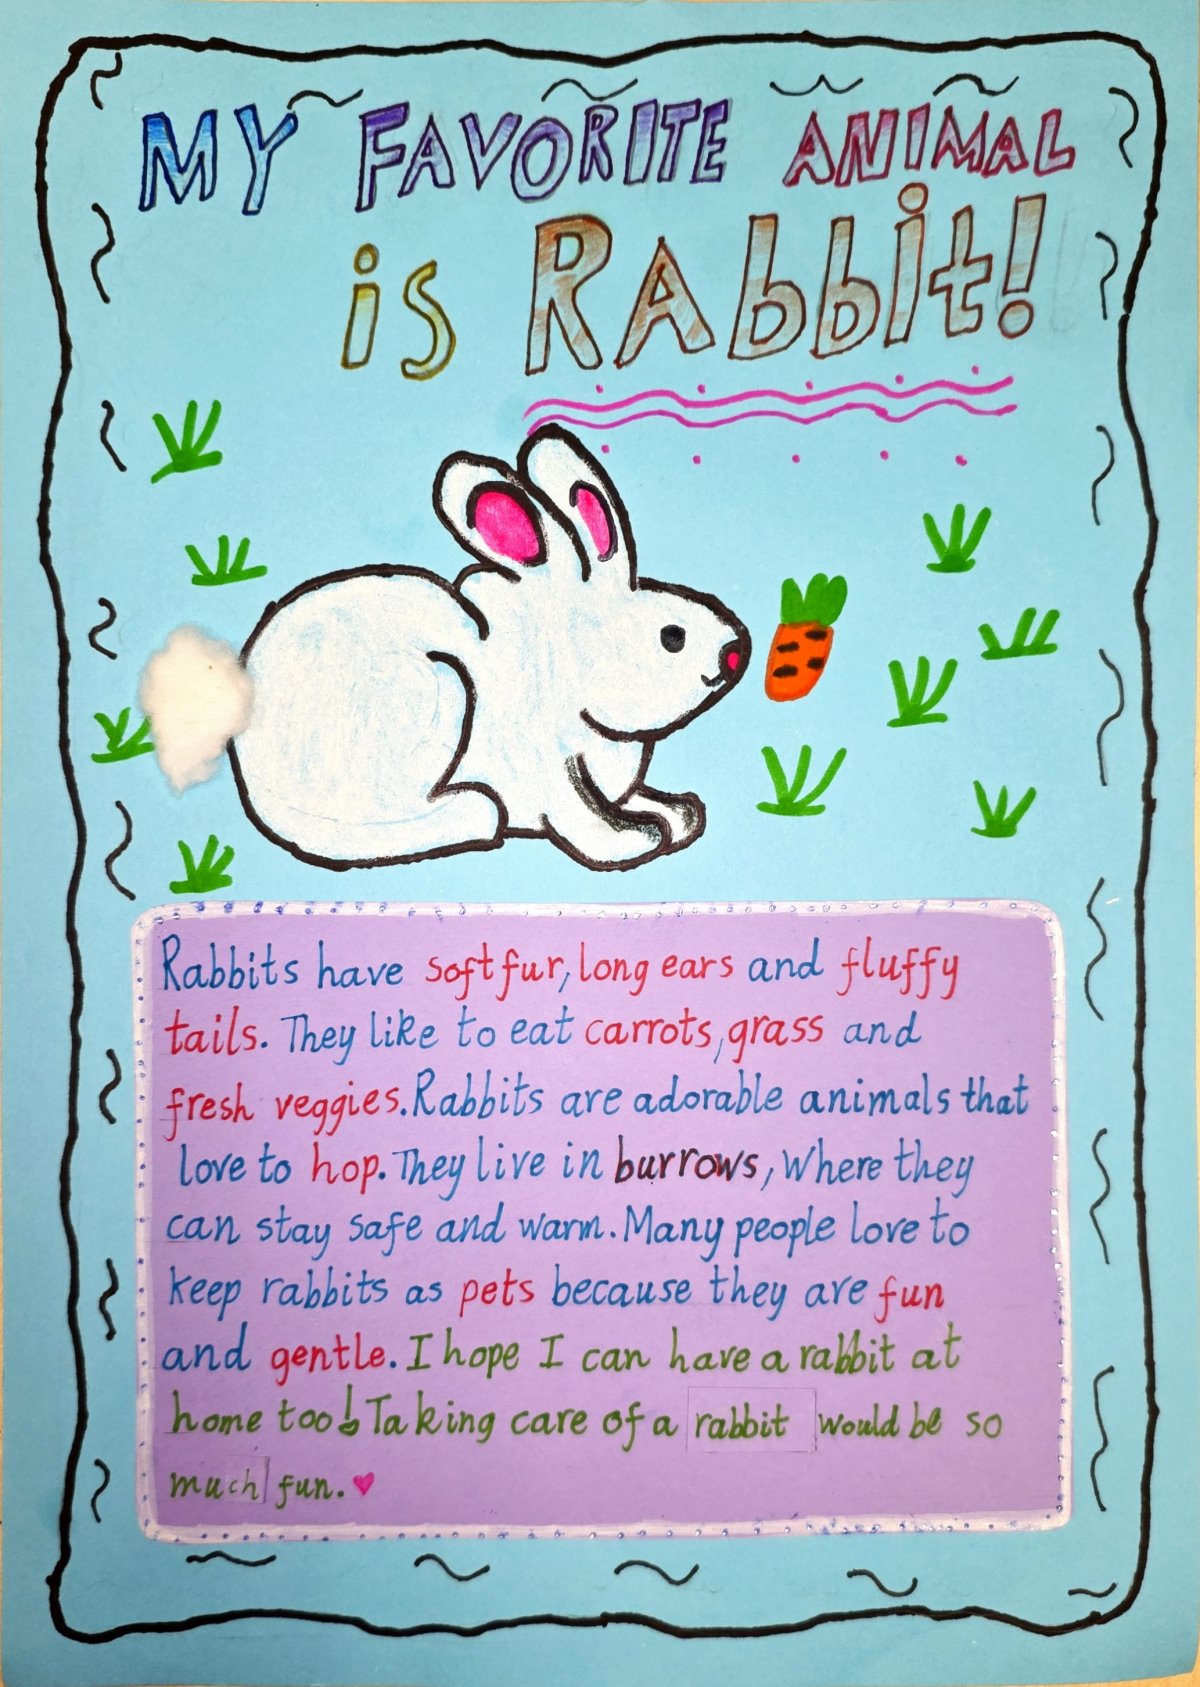 MY FAVORITE ANIMAL
is RAbbit!
Rabbits have soft fur, long ears and fluffy
tails. They like to eat carrots, grass and
fresh veggies. Rabbits are adorable animals that
love to hop. They live in burrows, Where they
can stay safe and warm. Many people love to
keep rabbits as pets because they are fun
and gentle. I hope I can have a rabbit at
home too! Taking care of a rabbit would be so
much fun.